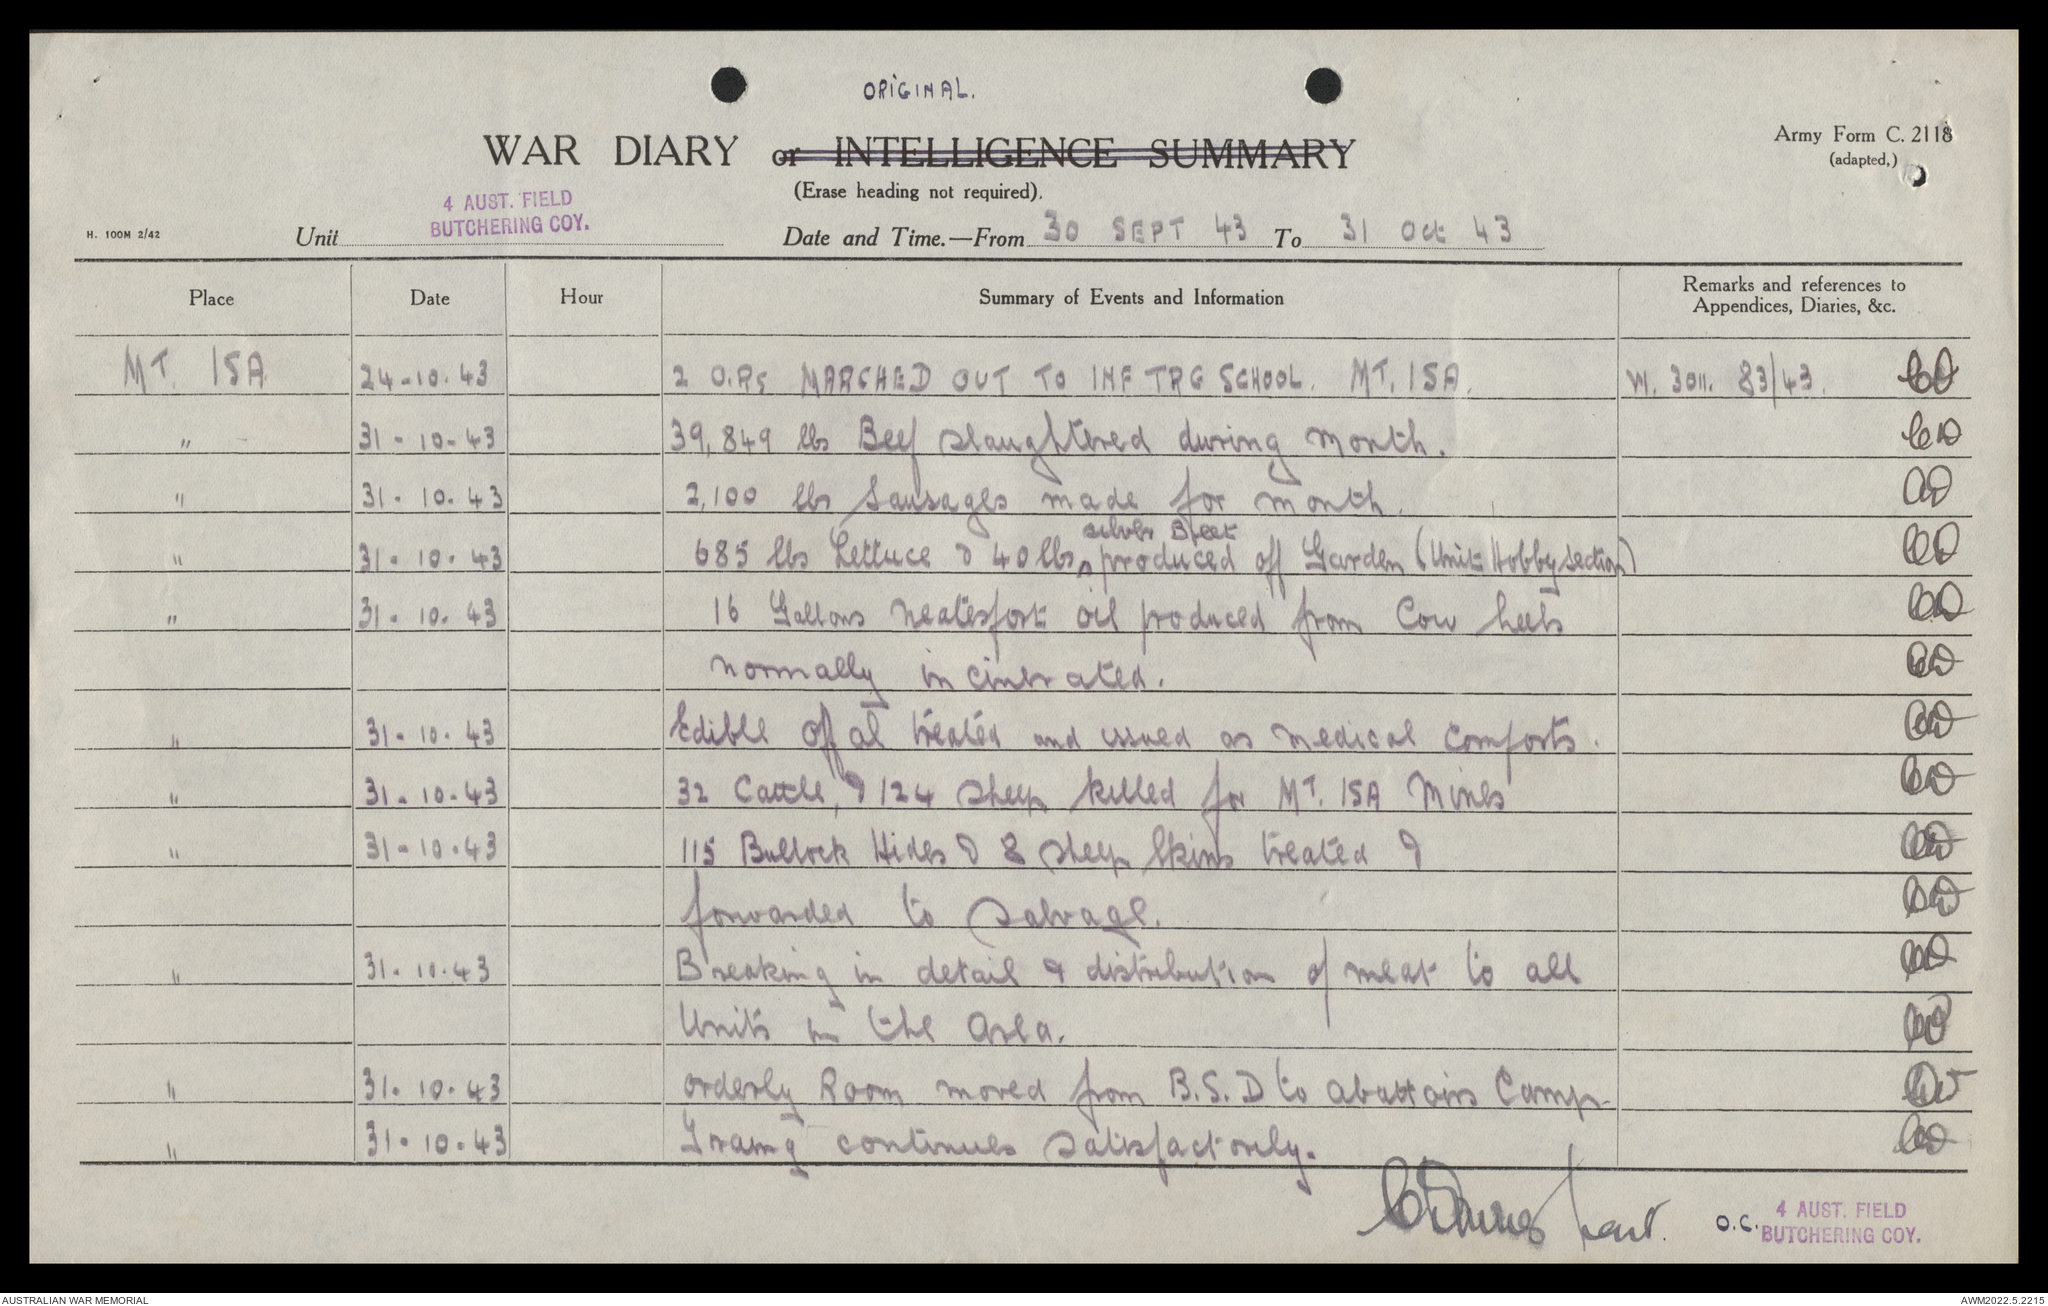 ORIGINAL.
WAR DIARY or INTELLIGENCE SUMMARY
Army Form C. 2118
(adapted,)
(Erase heading not required).
H. 100M 2/42
Unit 4 AUST. FIELD
BUTCHERING COY.
Date and Time.—From 30 SEPT 43 To 31 Oct 43
Place Date Hour Summary of Events and Information Remarks and references to
Appendices, Diaries, &c.
MT. ISA 24-10-43 2 O.Rs MARCHED OUT TO INF TRG SCHOOL. MT. ISA. W. 3011. 83/43.
" 31-10-43 39,849 lbs Beef slaughtered during month.
" 31-10-43 2,100 lbs Sausages made for month.
silver Beet
" 31-10-43 685 lbs Lettuce & 40 lbs produced off Garden (Unit Hobby section)
" 31-10-43 16 Gallons neatesfort oil produced from Cow heels
normally incinerated.
" 31-10-43 Edible offal treated and issued as medical comforts.
" 31-10-43 32 Cattle, & 124 sheep killed for MT. ISA Mines
" 31-10-43 115 Bullock Hides & 8 sheep skins treated &
forwarded to salvage.
" 31-10-43 Breaking in detail & distribution of meat to all
Units in the area.
" 31-10-43 orderly Room moved from B.S.D to abattoirs Camp
" 31-10-43 continues satisfactorily.
O.C. 4 AUST. FIELD
BUTCHERING COY.
AUSTRALIAN WAR MEMORIAL
AWM2022.5.2215